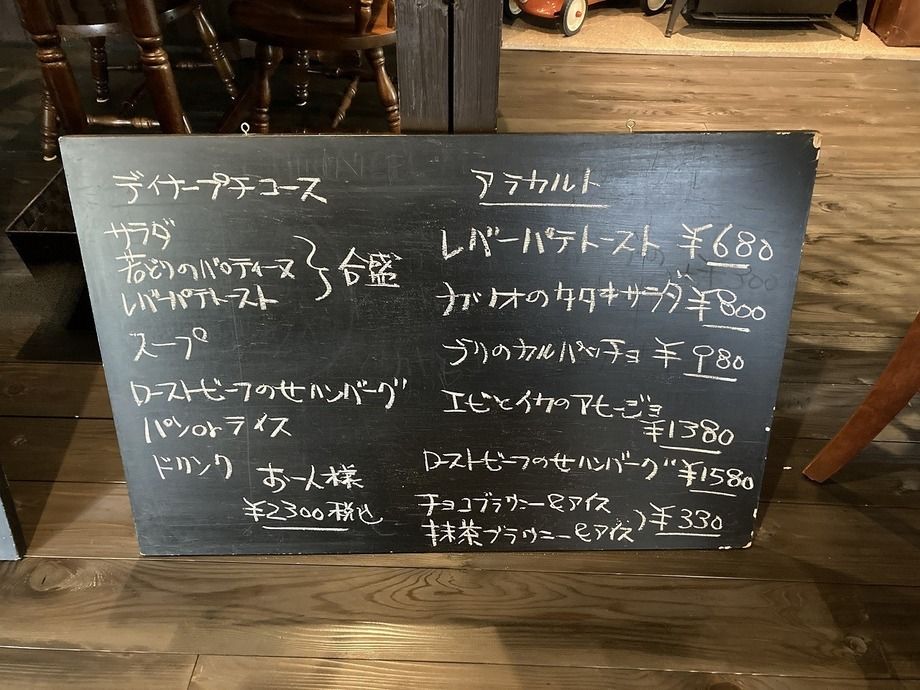 ディナープチコース
サラダ
若どりのバロティーヌ
レバーパテトースト
合盛
スープ
ローストビーフのせハンバーグ
パンorライス
ドリンク
お一人様
¥2300税込
アラカルト
レバーパテトースト ¥680
カツオのタタキサラダ ¥800
ブリのカルパッチョ ¥980
エビとイカのアヒージョ
¥1380
ローストビーフのせハンバーグ ¥1580
チョコブラウニー&アイス
抹茶ブラウニー&アイス
¥330